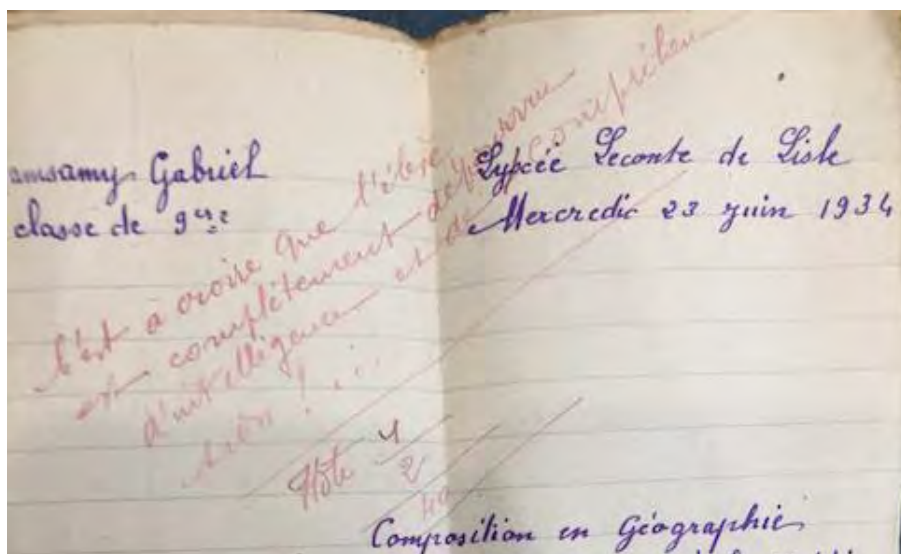 amsamy Gabriel
classe de 9ème
Lypcée Leconte de Lisle
Mercredie 23 juin 1934
C'est à croire que l'élève
est complètement dépourvu
d'intelligence et de compréhen
sion !...
Note 1/2
Composition en Géographie